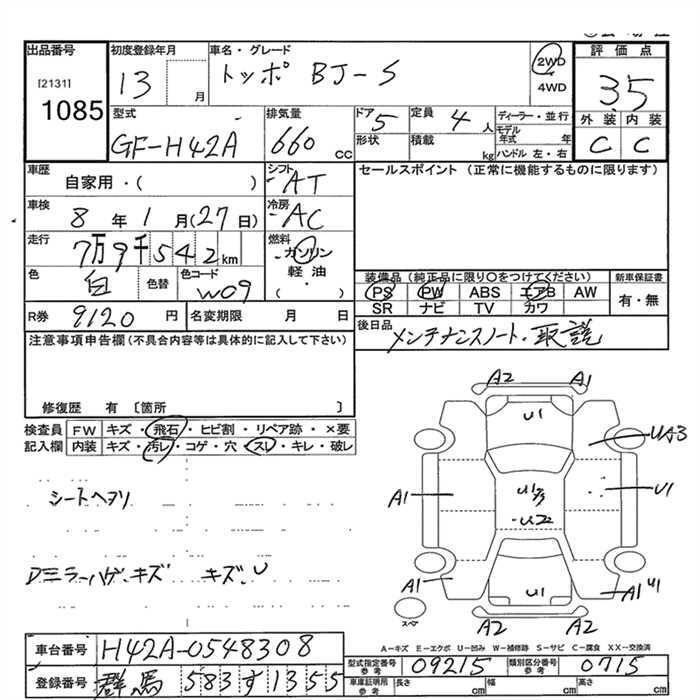 出品番号 初度登録年月 車名・グレード 評価点
[2131] 1085 13 月 トッポ BJ-S 2WD 4WD 3.5
型式 排気量 ドア 定員 ディーラー・並行 外装 内装
GF-H42A 660 cc 5 4 人 モデル年式 年 C C
形状 積載 kg ハンドル 左・右
車歴 シフト セールスポイント (正常に機能するものに限ります)
自家用・( ) AT
車検 冷房
8 年 1 月 (27 日) AC
走行 燃料
7万9千542 km ガソリン
色 色替 色コード 軽油・
白 W09 ( )
装備品 (純正品に限り○をつけてください) 新車保証書
PS PW ABS エアB AW 有・無
SR ナビ TV カワ
R券 9120 円 名変期限 月 日
後日品 メンテナンスノート・取説
注意事項申告欄 (不具合内容等は具体的に記入して下さい)
修復歴 有 〔箇所 〕
検査員 FW キズ・飛石・ヒビ割・リペア跡・×要
記入欄 内装 キズ・汚レ・コゲ・穴・スレ・キレ・破レ
シートヘタリ
Dミラーハゲ・キズ キズ、U
A2 A1
U1
UA3
A1 U1
U2
A1 U1 A1 U1
スペア
A2 A2
A－キズ E－エクボ U－凹み W－補修跡 S－サビ C－腐食 XX－交換済
車台番号 H42A-0548308
型式指定番号 参考 09215 類別区分番号 参考 0715
登録番号 群馬 583 す 1355
車庫証明用 参考 長さ cm 幅 cm 高さ cm